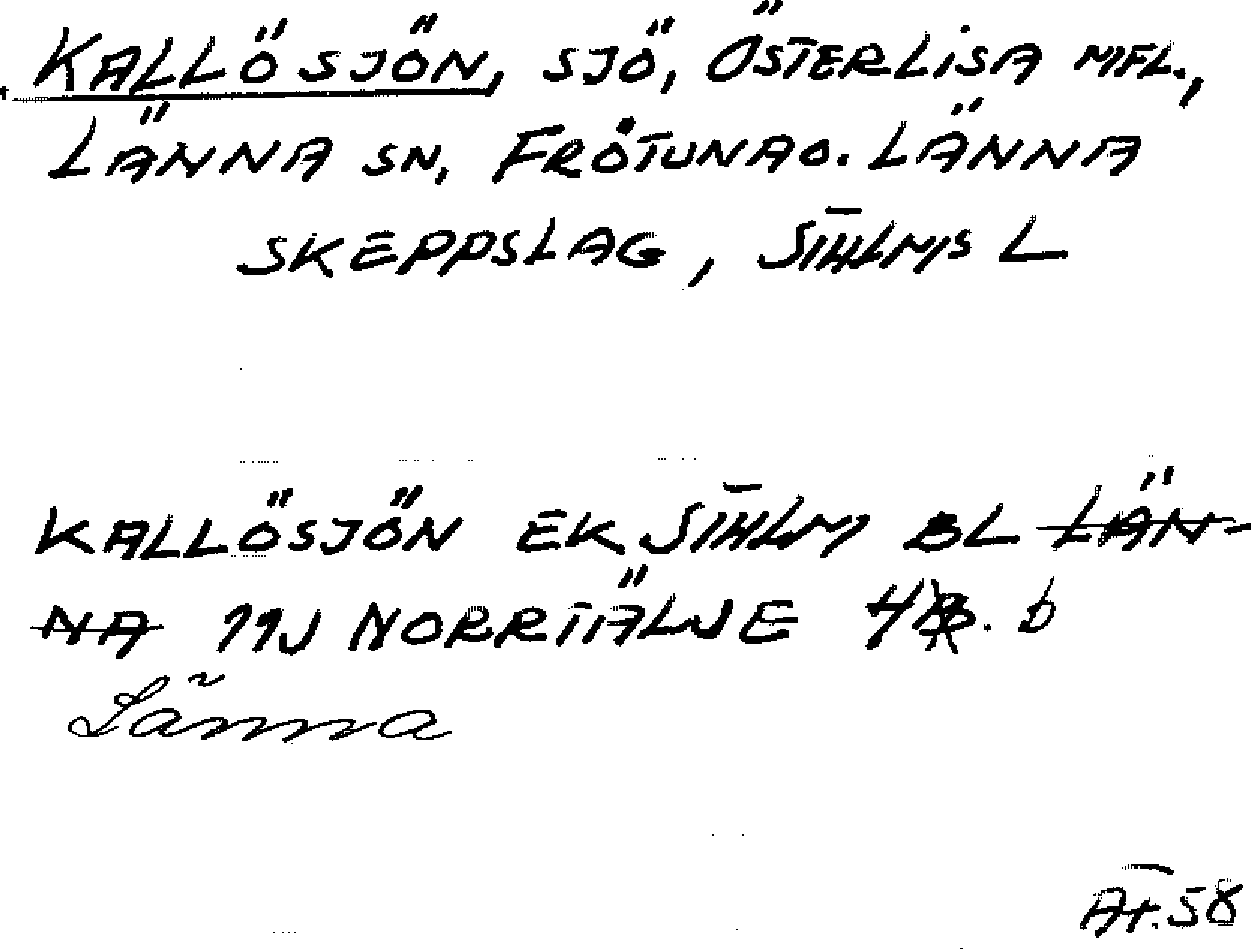 KALLÖSJÖN, SJÖ, ÖSTERLISA MFL.,
LÄNNA SN, FRÖTUNA O. LÄNNA
SKEPPSLAG, STHLMS L
KALLÖSJÖN EK STHLM BL LÄN-
NA 11J NORRTÄLJE 4 b
Länna
AT. 58